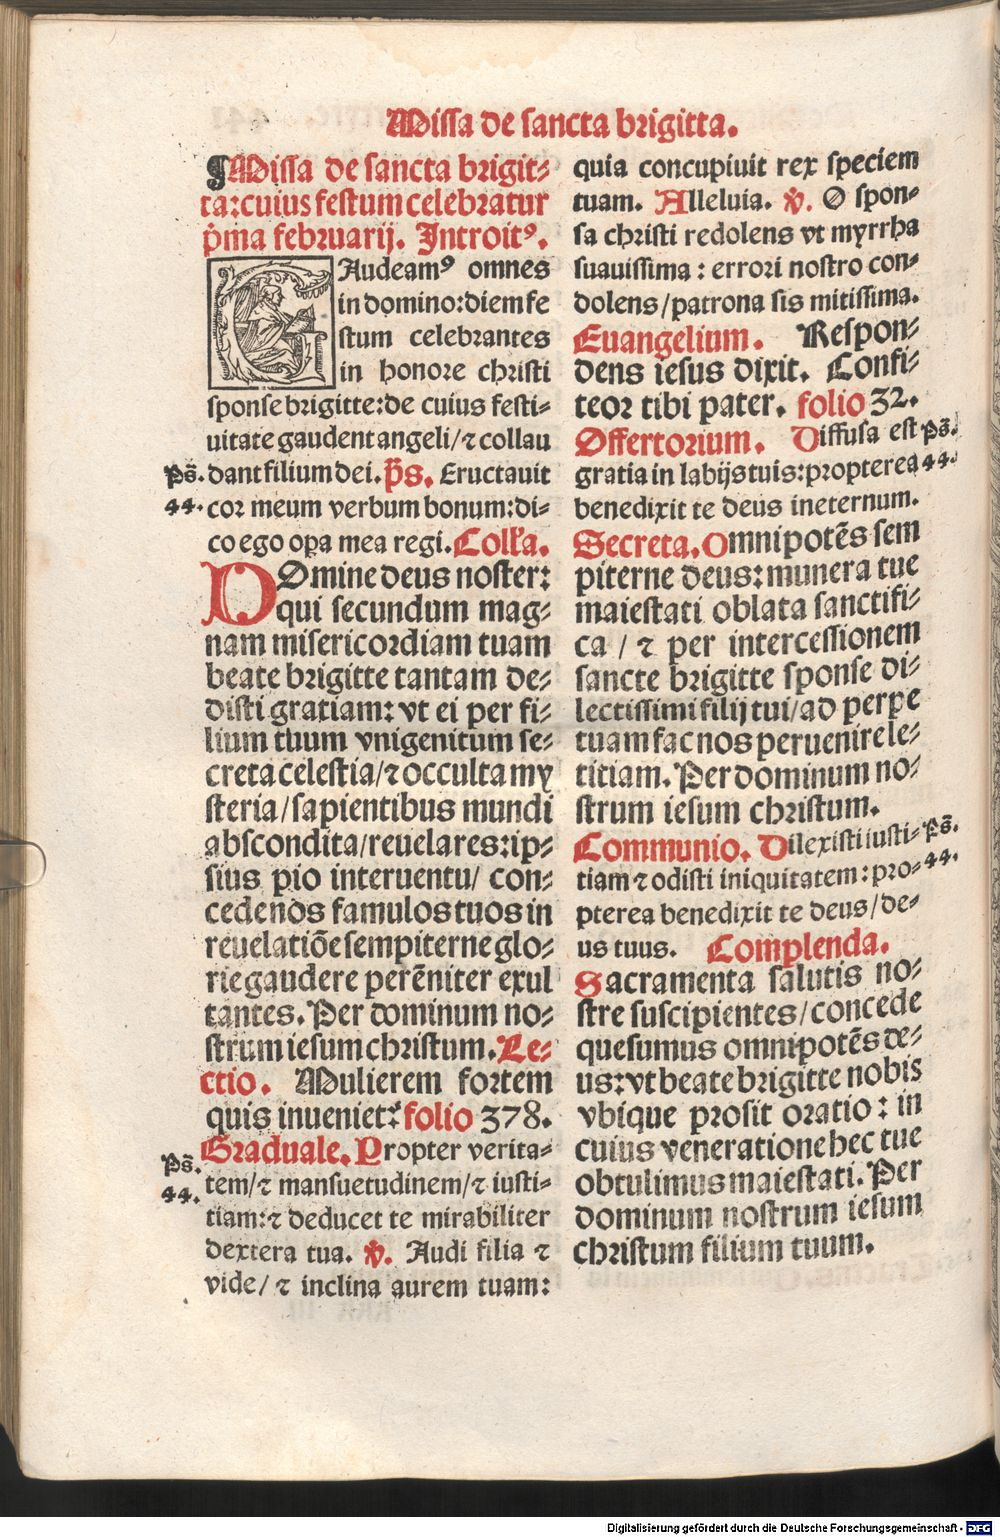 Missa de sancta brigitta.
¶Missa de sancta brigit⸗
ta:cuius festum celebratur
p̄ma februarij. Introitꝰ.
GAudeamꝰ omnes
in domino:diem fe
stum celebrantes
in honore christi
sponse brigitte:de cuius festi⸗
uitate gaudent angeli/⁊ collau
dant filium dei. p̄s. Eructauit
Ps̄.
44.
cor meum verbum bonum:di⸗
co ego opa mea regi. Coll'a.
DOmine deus noster:
qui secundum mag⸗
nam misericordiam tuam
beate brigitte tantam de⸗
disti gratiam: vt ei per fi⸗
lium tuum vnigenitum se⸗
creta celestia/⁊ occulta my
steria/sapientibus mundi
abscondita/reuelares:ip⸗
sius pio interuentu/ con⸗
cede nos famulos tuos in
reuelatiōe sempiterne glo⸗
rie gaudere perēniter exul
tantes. Per dominum no⸗
strum iesum christum. Le⸗
ctio. Mulierem fortem
quis inueniet? folio 378.
Graduale. Propter verita⸗
Ps̄.
44.
tem/⁊ mansuetudinem/⁊ iusti⸗
tiam:⁊ deducet te mirabiliter
dextera tua. ℣. Audi filia ⁊
vide/ ⁊ inclina aurem tuam:
quia concupiuit rex speciem
tuam. Alleluia. ℣. O spon⸗
sa christi redolens vt myrrha
suauissima : errori nostro con⸗
dolens/patrona sis mitissima.
Euangelium. Respon⸗
dens iesus dixit. Confi⸗
teor tibi pater. folio 32.
Offertorium. Diffusa est
Ps̄.
44.
gratia in labijs tuis:propterea
benedixit te deus ineternum.
Secreta. Omnipotēs sem
piterne deus: munera tue
maiestati oblata sanctifi⸗
ca / ⁊ per intercessionem
sancte brigitte sponse di⸗
lectissimi filij tui/ad perpe
tuam fac nos peruenire le⸗
titiam. Per dominum no⸗
strum iesum christum.
Communio. Dilexisti iusti⸗
Ps̄.
44.
tiam ⁊ odisti iniquitatem : pro⸗
pterea benedixit te deus/de⸗
us tuus. Complenda.
Sacramenta salutis no⸗
stre suscipientes/concede
quesumus omnipotēs de⸗
us:vt beate brigitte nobis
vbique prosit oratio : in
cuius veneratione hec tue
obtulimus maiestati. Per
dominum nostrum iesum
christum filium tuum.
Digitalisierung gefördert durch die Deutsche Forschungsgemeinschaft - DFG